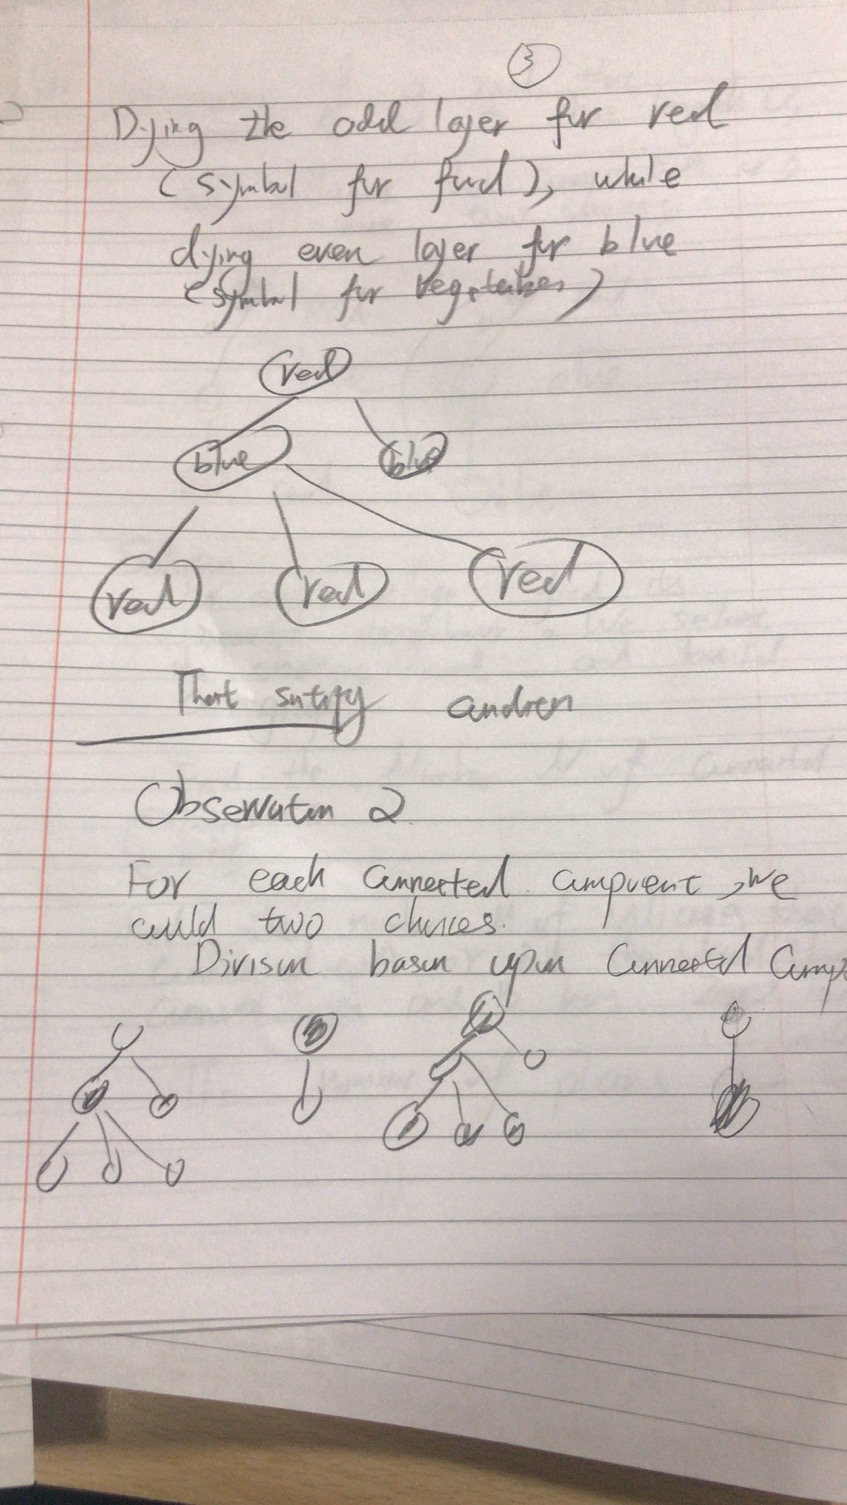 3
Dying the odd layer for red
(symbol for food), while
dying even layer for blue
(symbol for vegetables)
red
blue blue
red red red
That satisfy
Observation 2
For each connected component, we
could two choices.
Division basen upon Connected Comp